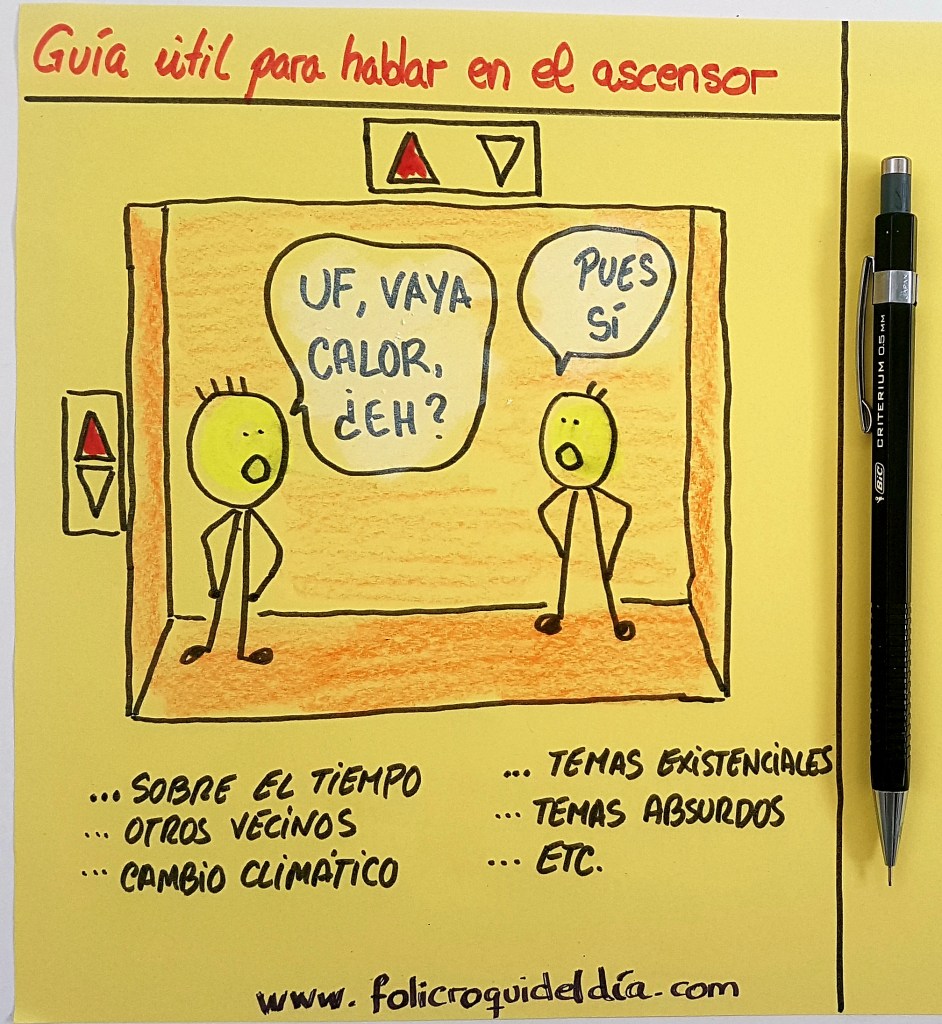 Guía útil para hablar en el ascensor
UF, VAYA
CALOR,
¿EH?
PUES
SÍ
... SOBRE EL TIEMPO
... OTROS VECINOS
... CAMBIO CLIMÁTICO
... TEMAS EXISTENCIALES
... TEMAS ABSURDOS
... ETC.
www.folicroquideldía.com
BIC CRITERIUM 0.5 MM
JAPAN